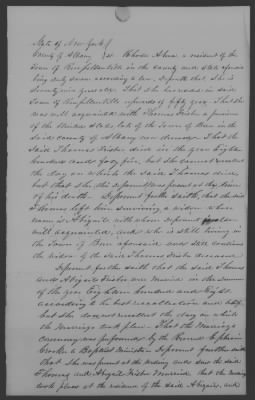 State of New York }
County of Albany } ss Rhoda Ahna a resident of the
Town of Rensselaerville in the county and state aforesaid
being duly sworn according to law, deposeth that she is
seventy nine years old. That she has resided in said
Town of Rensselaerville upwards of fifty years. That she
was well acquainted with Thomas Frisbie a pensioner
of the United States late of the Town of Bern in the
said county of Albany now deceased. That the
said Thomas Frisbie died in the year eighteen
hundred and forty five, but she cannot recollect
the day on which the said Thomas died,
but that she, this deponent was present at the time
of his death. Deponent further saith that the said
Thomas left him surviving a widow whose
name is Abigail with whom deponent is
well acquainted, and who is still living in
the Town of Bern aforesaid and still continues
the widow of the said Thomas Frisbie deceased.
Deponent further saith that the said Thomas
and Abigail Frisbie were married in the summer
of the year Eighteen hundred and Eight
according to her best recollection and belief,
but she does not recollect the day on which
the marriage took place. That the marriage
ceremony was performed by the Revd. Ephraim
Crocker a Baptist Minister. Deponent further saith
that she was present at the wedding and saw the said
Thomas and Abigail Frisbie married that the marriage
took place at the residence of the said Abigail, and